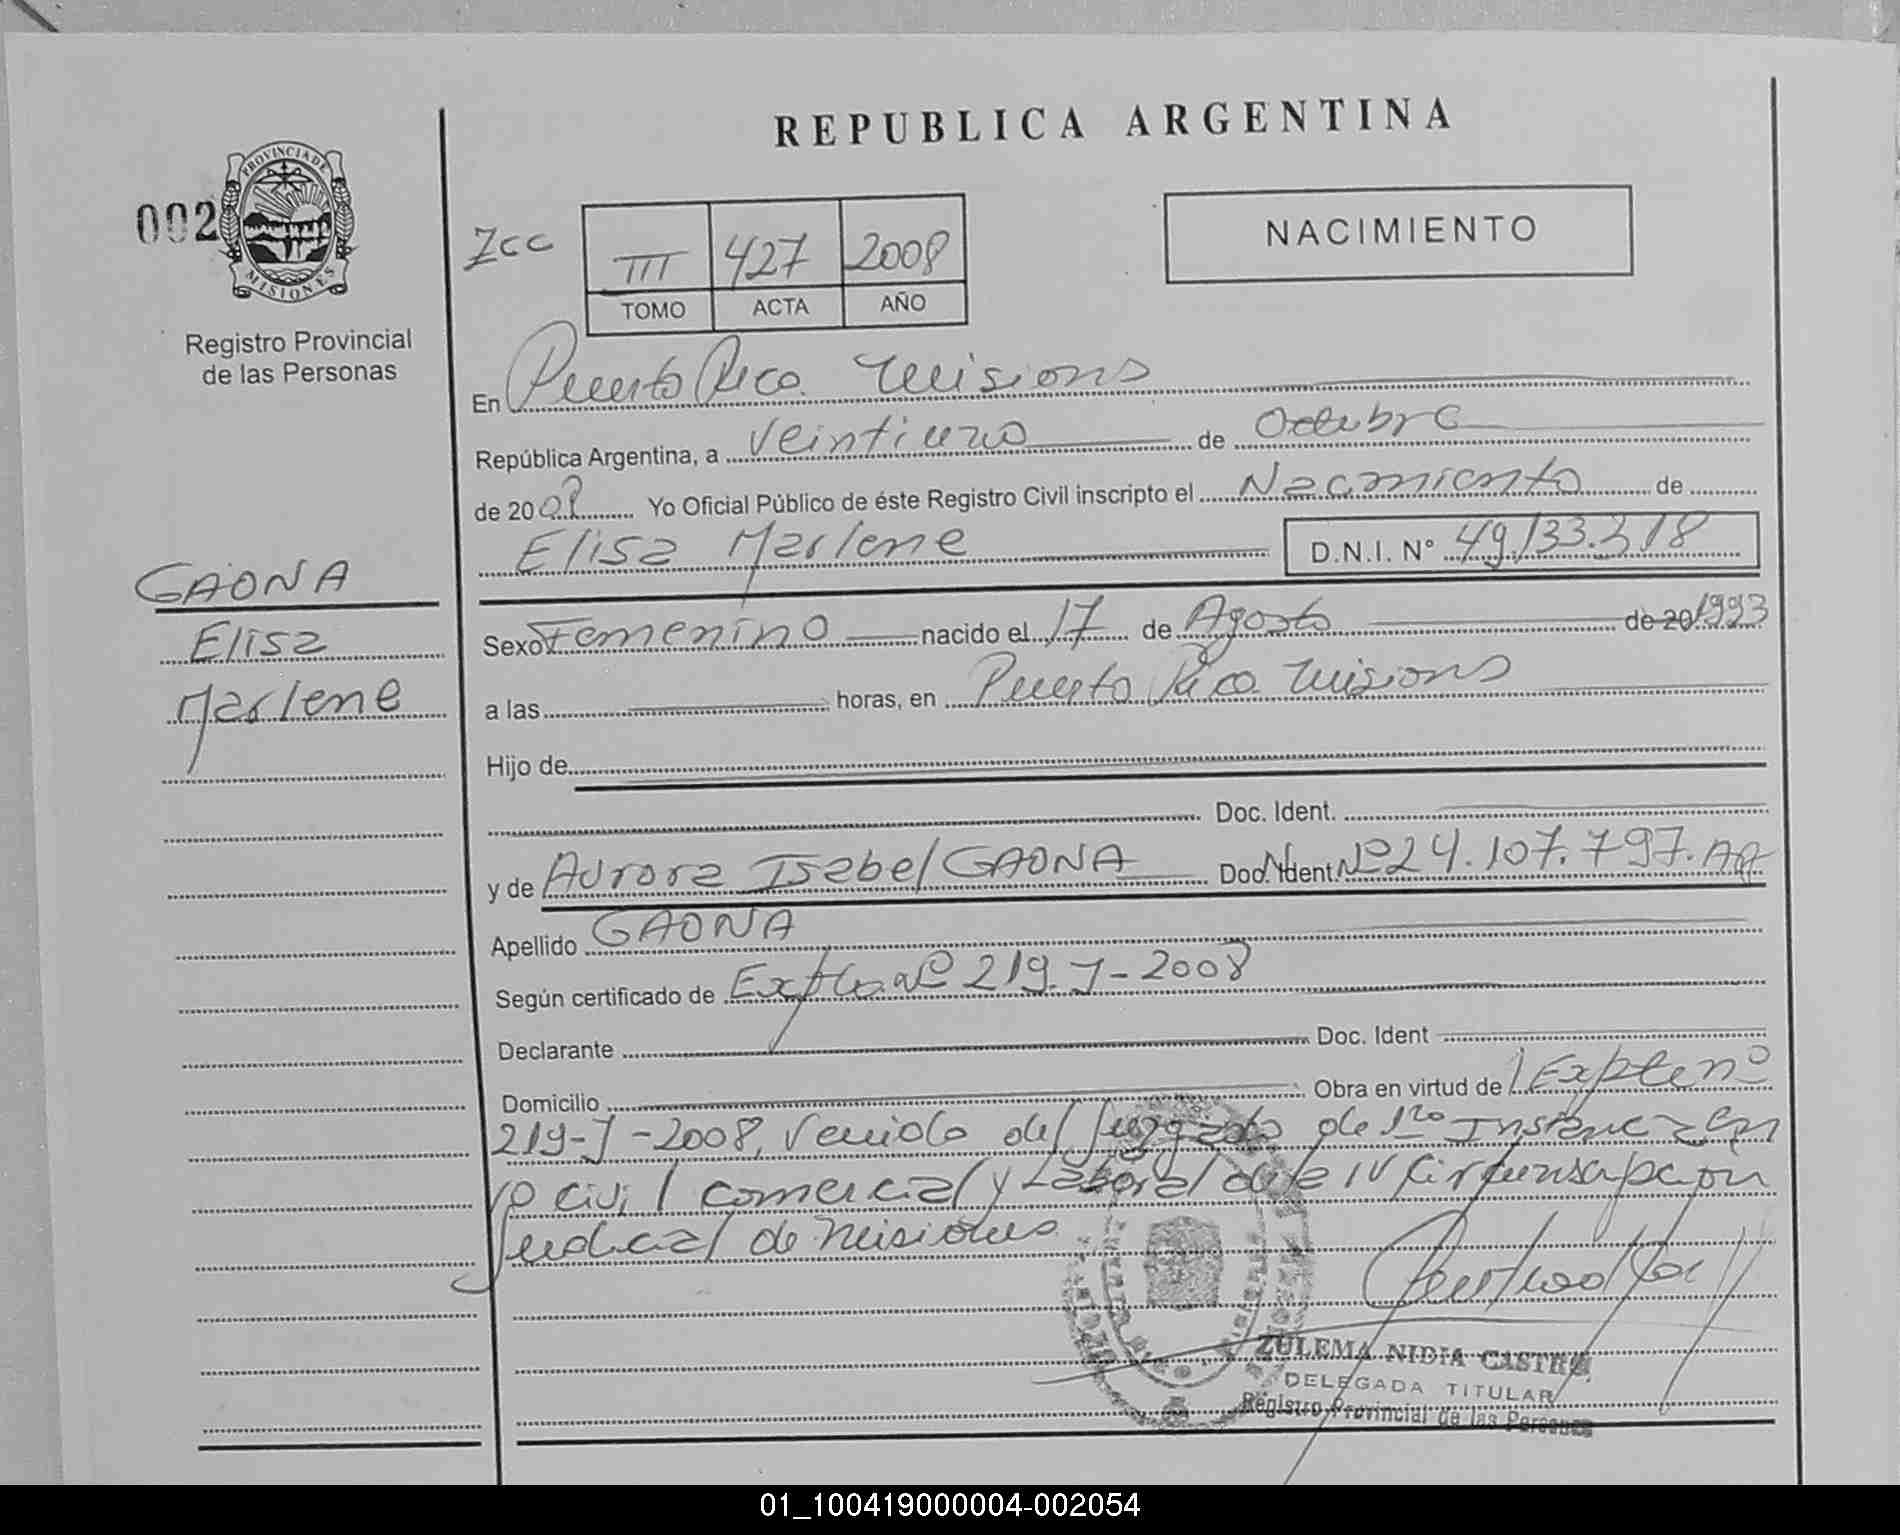 REPUBLICA ARGENTINA
002
PROVINCIA DE
MISIONES
Registro Provincial
de las Personas
Zcc
III 427 2008
TOMO ACTA AÑO
NACIMIENTO
En Puerto Rico Misiones
República Argentina, a veintiuno de Octubre
de 2008 Yo Oficial Público de éste Registro Civil inscripto el Nacimiento de
Elisa Marlene D.N.I. N° 49.133.318
GAONA
Elisa
Marlene
Sexo Femenino nacido el 17 de Agosto de 20 1993
a las horas, en Puerto Rico Misiones
Hijo de
Doc. Ident.
y de Aurora Isabel GAONA Doc. Ident. Nº 24.107.797. Ag
Apellido GAONA
Según certificado de Expte. nº 219-J-2008
Declarante Doc. Ident
Domicilio Obra en virtud de Expte nº
219-J-2008, venido del Juzgado de 1ro Instancia en
lo civil comercial y Laboral de la IV Circunscripcion
Judicial de Misiones
ZULEMA NIDIA CASTRO
DELEGADA TITULAR
Registro Provincial de las Personas
01_100419000004-002054